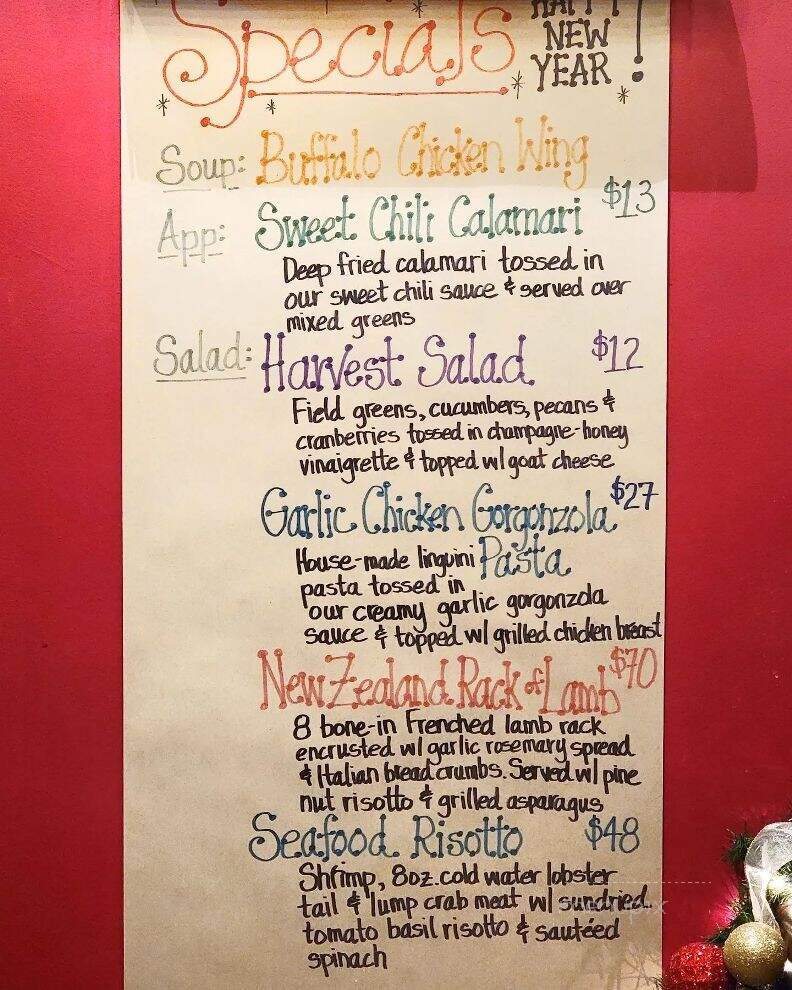 HAPPY
Specials NEW
YEAR!
Soup: Buffalo Chicken Wing
App: Sweet Chili Calamari $13
Deep fried calamari tossed in
our sweet chili sauce & served over
mixed greens
Salad: Harvest Salad $12
Field greens, cucumbers, pecans &
cranberries tossed in champagne-honey
vinaigrette & topped w/ goat cheese
Garlic Chicken Gorgonzola $27
House-made linguini Pasta
pasta tossed in
our creamy garlic gorgonzola
sauce & topped w/ grilled chicken breast
New Zealand Rack of Lamb $70
8 bone-in Frenched lamb rack
encrusted w/ garlic rosemary spread
& Italian bread crumbs. Served w/ pine
nut risotto & grilled asparagus
Seafood Risotto $48
Shrimp, 8oz. cold water lobster
tail & lump crab meat w/ sundried
tomato basil risotto & sautéed
spinach